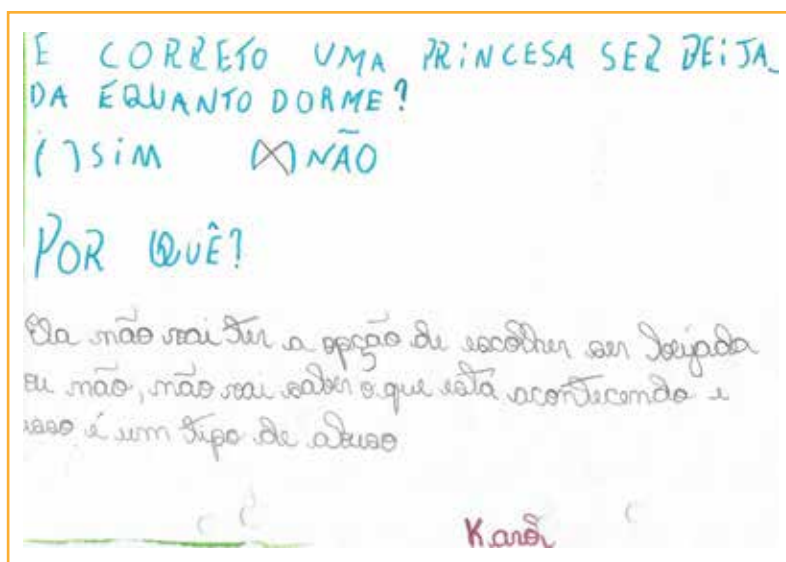 E CORRETO UMA PRINCESA SER BEIJA_
DA EQUANTO DORME?
( ) SIM (X) NÃO
POR QUÊ?
Ela não vai ter a opção de escolher ser beijada
ou não, não vai saber o que está acontecendo e
isso é um tipo de abuso